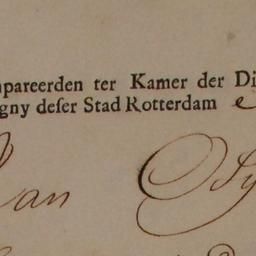 mpareerden ter Kamer der Di
gny deſer Stad Rotterdam e
Jan